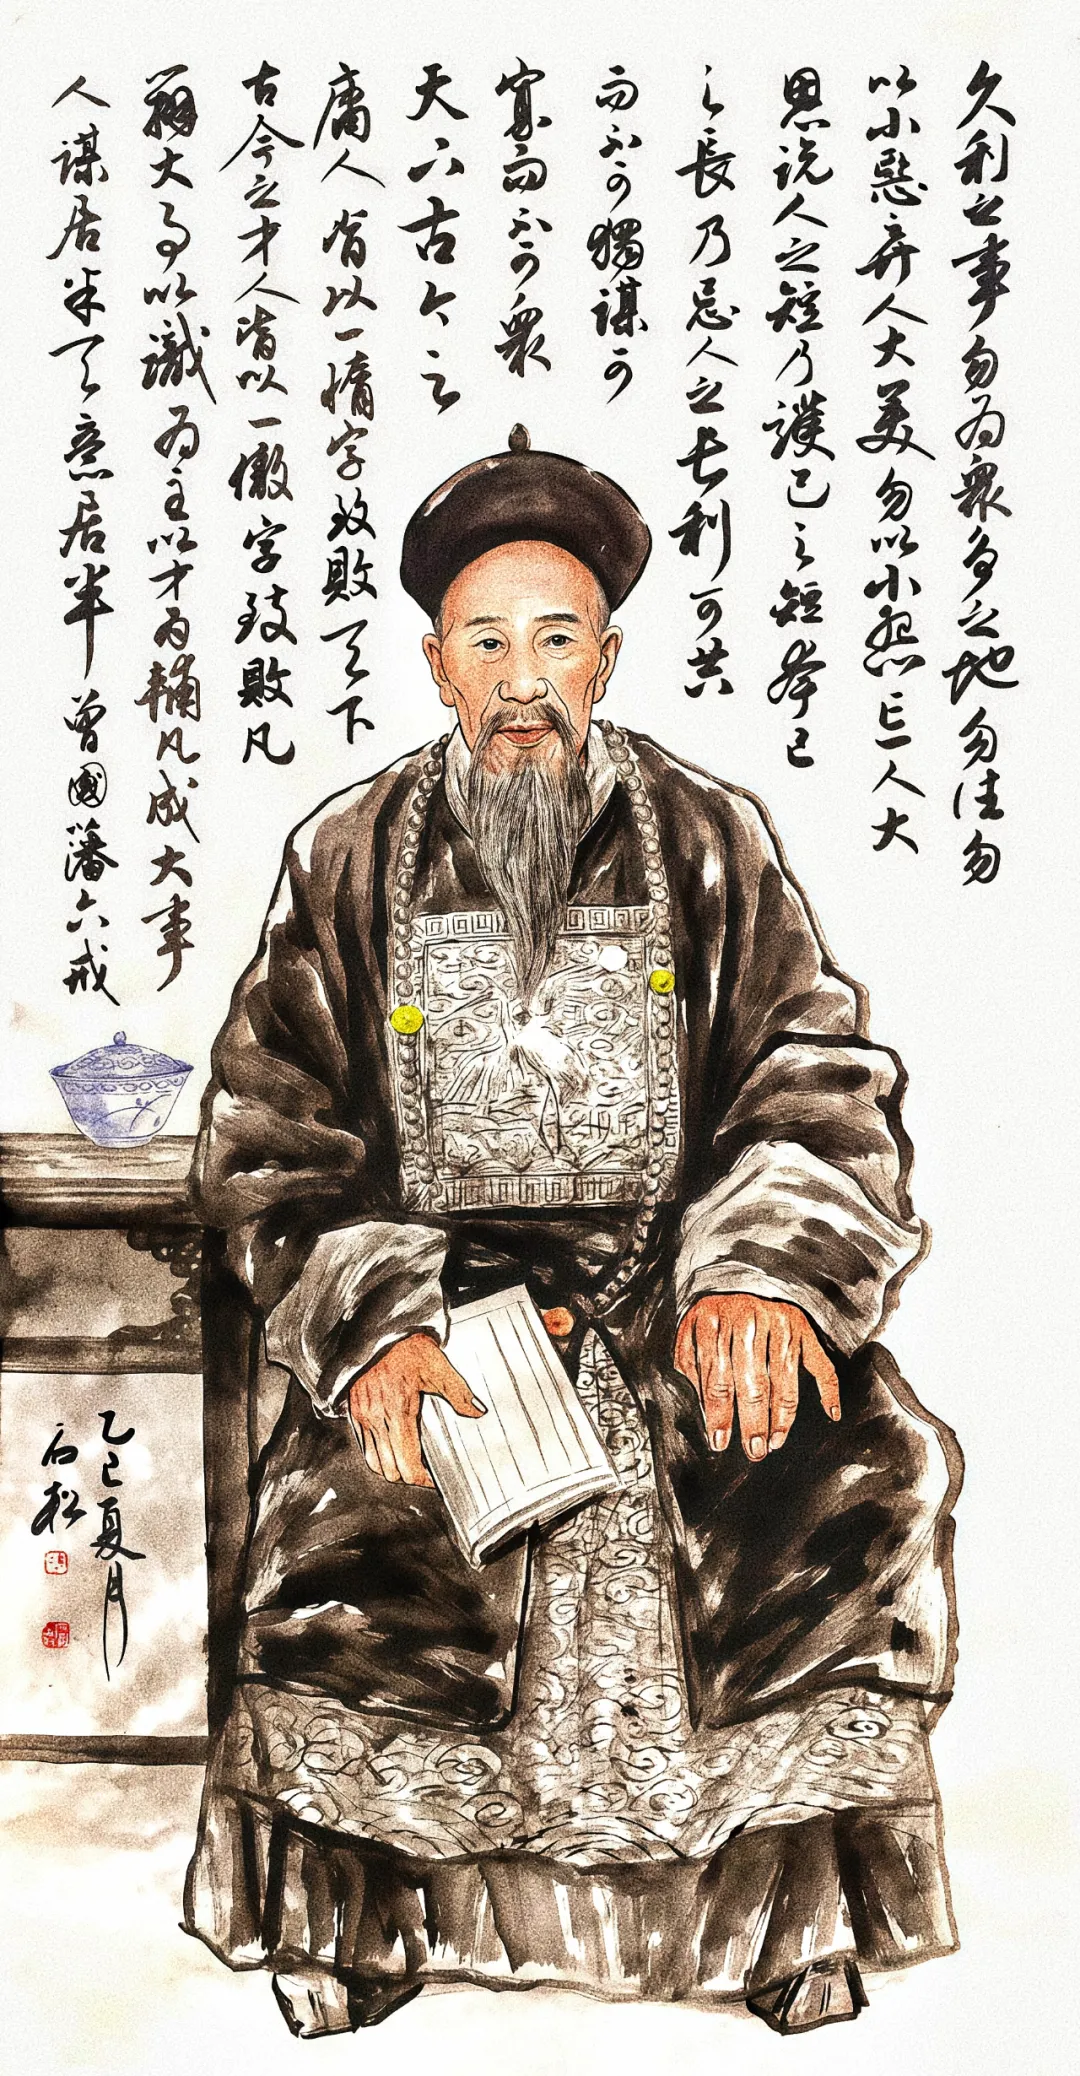 久利之事勿为眾争之地勿往勿
以小惡弃人大美勿以小怨忘人大
恩说人之短乃護己之短夸己
之長乃忌人之长利可共
而不可獨謀可
寡而不可眾
天下古今之
庸人皆以一惰字致敗天下
古今之才人皆以一傲字致敗凡
办大事以識为主以才为輔凡成大事
人謀居半天意居半 曾國藩六戒
乙巳夏月